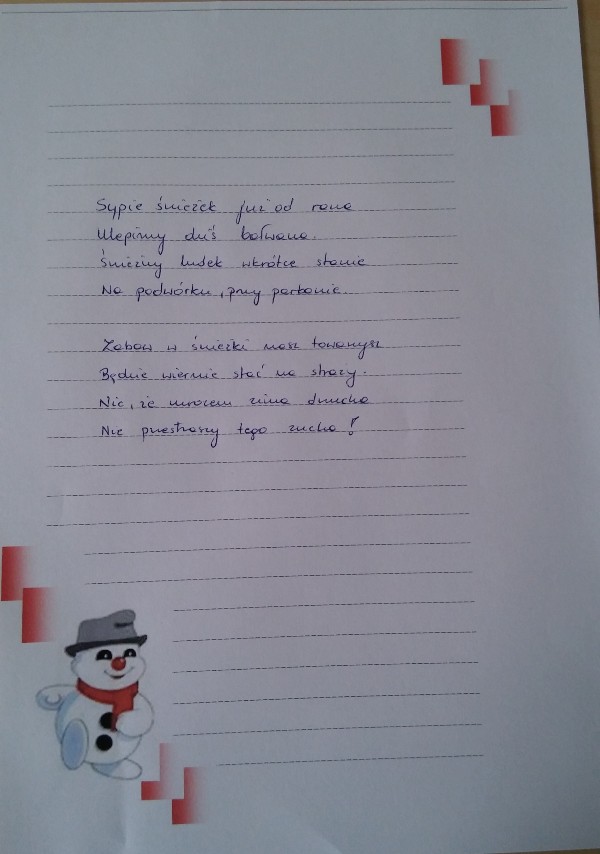 Sypie śnieżek już od rana
Ulepimy dziś bałwana.
Śnieżny ludek wkrótce stanie
Na podwórku, przy parkanie.
Zabaw w śnieżki nasz towarzysz
Będzie wiernie stać na straży.
Nic, że mrozem zima dmucha
Nie przestraszy tego zucha!